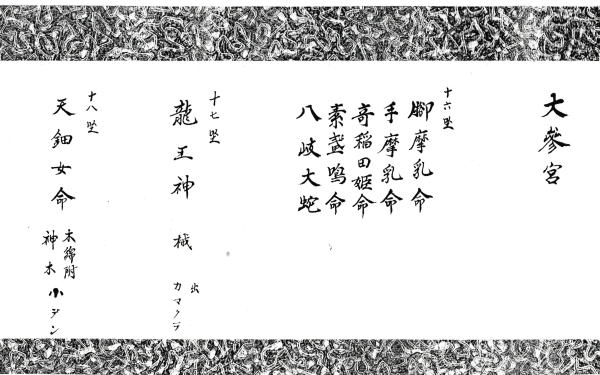 大參宮
十六坐
腳摩乳命
手摩乳命
奇稲田姫命
素盞嗚命
八岐大蛇
十七坐
龍王神 械 出
カマクラ
十八坐
天鈿女命
木綿附
神木 小ヲン